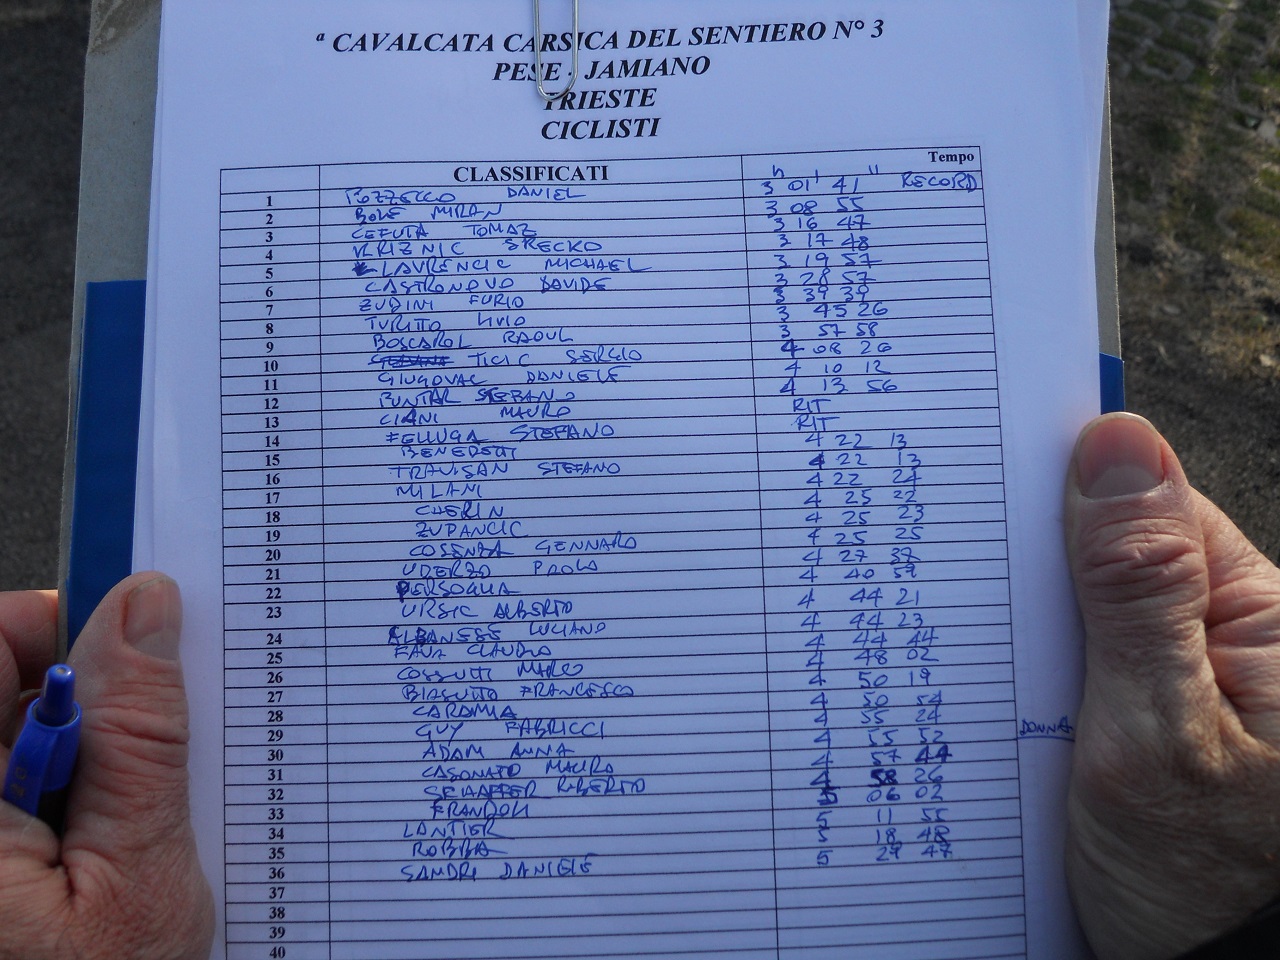 ª CAVALCATA CARSICA DEL SENTIERO N° 3
PESE - JAMIANO
TRIESTE
CICLISTI
CLASSIFICATI Tempo
h ' "
1 POZZECCO DANIEL 3 01 41 RECORD
2 BOLE MIRAN 3 08 55
3 CEFUTA TOMAZ 3 16 47
4 KRIZNIC SRECKO 3 17 48
5 LAVRENCIC MICHAEL 3 19 57
6 CASTRONOVO DAVIDE 3 28 57
7 ZUDINI FURIO 3 39 39
8 TURITTO LIVIO 3 45 26
9 BOSCAROL RAOUL 3 57 58
10 TICIC SERGIO 4 08 26
11 GIUGOVAC DANIELE 4 10 12
12 PUNTAR STEFANO 4 13 56
13 CIANI MAURO RIT
14 FELLUGA STEFANO RIT
15 BENEDETTI 4 22 13
16 TRAVISAN STEFANO 4 22 13
17 MILANI 4 22 24
18 CHERIN 4 25 22
19 ZUPANCIC 4 25 23
20 COSENZA GENNARO 4 25 25
21 UDERZO PAOLO 4 27 37
22 PERSOGLIA 4 40 59
23 URSIC ALBERTO 4 44 21
24 ALBANESE LUCIANO 4 44 23
25 FAVA CLAUDIO 4 44 44
26 COSSUTTI MARCO 4 48 02
27 BIASUTTO FRANCESCO 4 50 19
28 CARAMIA 4 50 54
29 GUY FABRICCI 4 55 24
30 ADAM ANNA 4 55 52 DONNA
31 CASONATO MAURO 4 57 44
32 SCHAFFER ROBERTO 4 58 26
33 FRANDOLI 5 06 02
34 LANTIER 5 11 55
35 ROBBA 5 18 48
36 SANDRI DANIELE 5 29 47
37
38
39
40